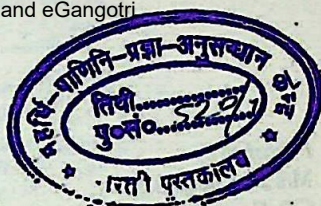 and eGangotri
महर्षि-पाणिनि-प्रज्ञा-अनुसन्धान
तिथी..............
पु०सं०....5291
पुस्तकालय